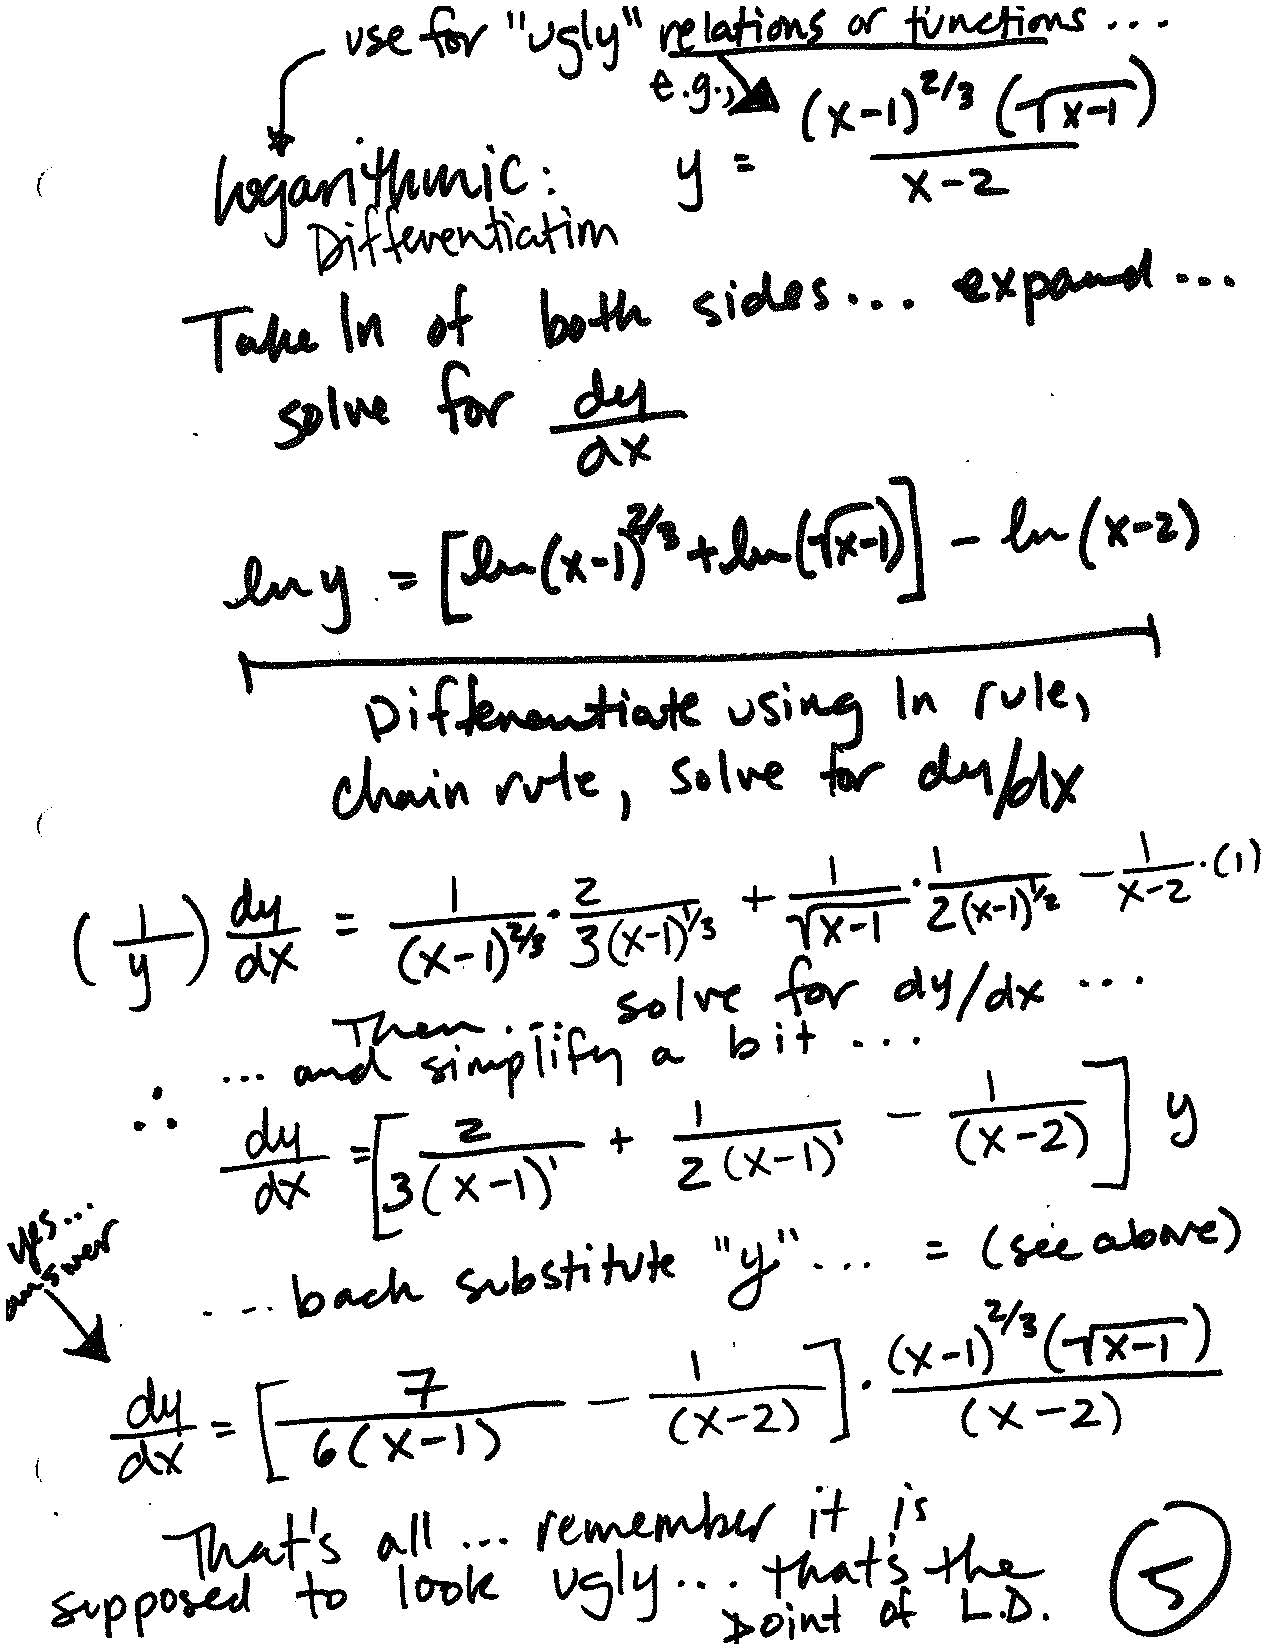 use for "ugly" relations or functions ...
e.g.,
logarithmic: y = (x-1)^{2/3} (√(x-1)) / (x-2)
Differentiation
Take ln of both sides... expand...
solve for dy/dx
ln y = [ln(x-1)^{2/3} + ln(√(x-1))] - ln(x-2)
Differentiate using ln rule,
chain rule, solve for dy/dx
(1/y) dy/dx = 1/(x-1)^{2/3} · 2/(3(x-1)^{1/3}) + 1/√(x-1) · 1/(2(x-1)^{1/2}) - 1/(x-2) · (1)
Then... solve for dy/dx ...
... and simplify a bit ...
∴ dy/dx = [2/(3(x-1)^1) + 1/(2(x-1)^1) - 1/(x-2)] y
yes...
answer
... back substitute "y"... = (see above)
dy/dx = [7/(6(x-1)) - 1/(x-2)] · (x-1)^{2/3} (√(x-1)) / (x-2)
That's all ... remember it is
supposed to look ugly... that's the
point of L.D.
5